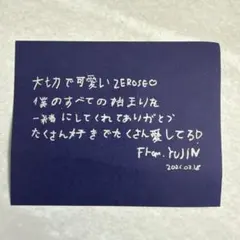 大切で可愛い ZEROSE♡
僕のすべての始まりを
一緒にしてくれてありがとう
たくさん大好きでたくさん愛してる♡
From. YUJIN